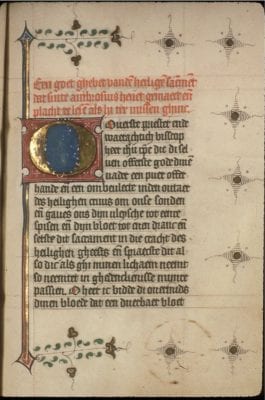 Een goet ghebet vanden heilige sacrament
dat sinte ambrosius heuet gemaect en
plach te lesen als hi ter missen ghinc
Ouerste priester ende
waerachtich bisscop
heer ihu xpe die di sel
uen offerste gode dinen
uader een puer offer
hande en een onbeulect inden outaer
des heilighen cruus om onse sonden
en gaues ons dijn uleysche tot eenre
spisen en dijn bloet tot enen dranc en
settes dit sacrament in die cracht des
heilighen gheests en spraecste dit al
so dic als ghi minen lichaem neemt
so neemtet in ghedenckenisse mijnre
passien. O heer ic bidde di ouermids
dinen bloede dat een dierbaer bloet